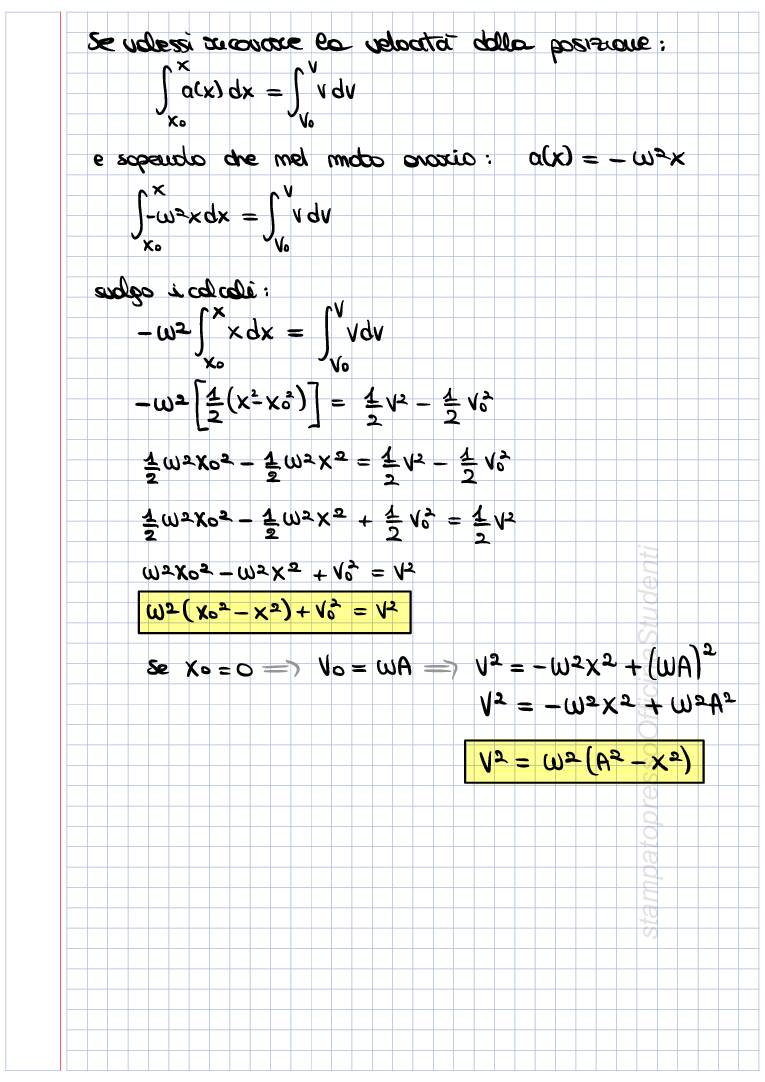 Se volessi ricavare la velocità dalla posizione:
∫_{x₀}^{x} a(x) dx = ∫_{v₀}^{v} v dv
e sapendo che nel moto armonico: a(x) = - ω²x
∫_{x₀}^{x} -ω²x dx = ∫_{v₀}^{v} v dv
svolgo i calcoli:
-ω² ∫_{x₀}^{x} x dx = ∫_{v₀}^{v} v dv
-ω² [1/2 (x² - x₀²)] = 1/2 v² - 1/2 v₀²
1/2 ω²x₀² - 1/2 ω²x² = 1/2 v² - 1/2 v₀²
1/2 ω²x₀² - 1/2 ω²x² + 1/2 v₀² = 1/2 v²
ω²x₀² - ω²x² + v₀² = v²
ω²(x₀² - x²) + v₀² = v²
se x₀ = 0 ⟹ v₀ = ωA ⟹ v² = -ω²x² + (ωA)²
v² = -ω²x² + ω²A²
v² = ω²(A² - x²)